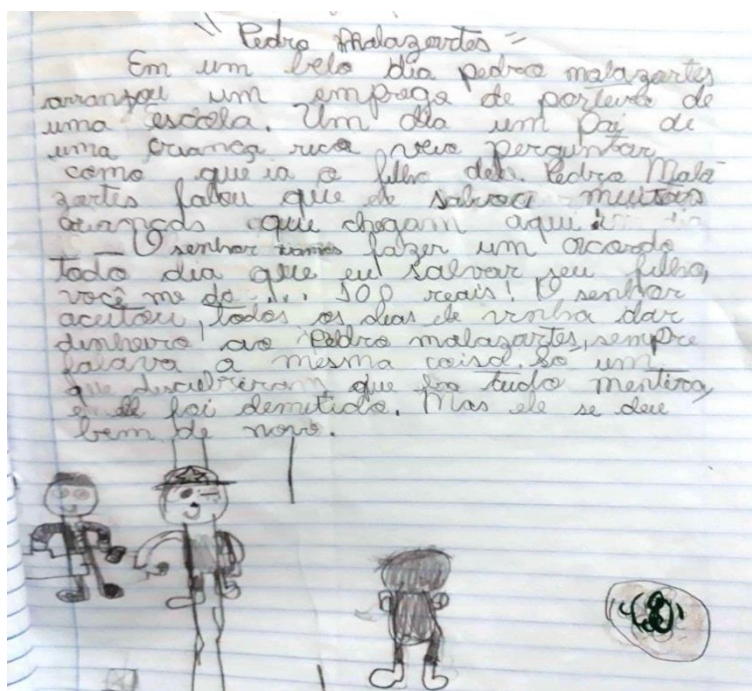 "Pedro Malazartes"
Em um belo dia pedro malazartes
arranjou um emprego de porteiro de
uma escola. Um dia um pai de
uma criança rica veio perguntar
como que ia o filho dele. Pedro Mala
zartes falou que ele salvou muitas
crianças que chegam aqui
— O senhor vamos fazer um acordo
todo dia que eu salvar seu filho,
você me da ... 100 reais! O senhor
aceitou, todos os dias ele vinha dar
dinheiro ao Pedro malazartes, sempre
falava a mesma coisa. Só um
que discubriram que foi tudo mentira,
e ele foi demitido. Mas ele se deu
bem de novo.